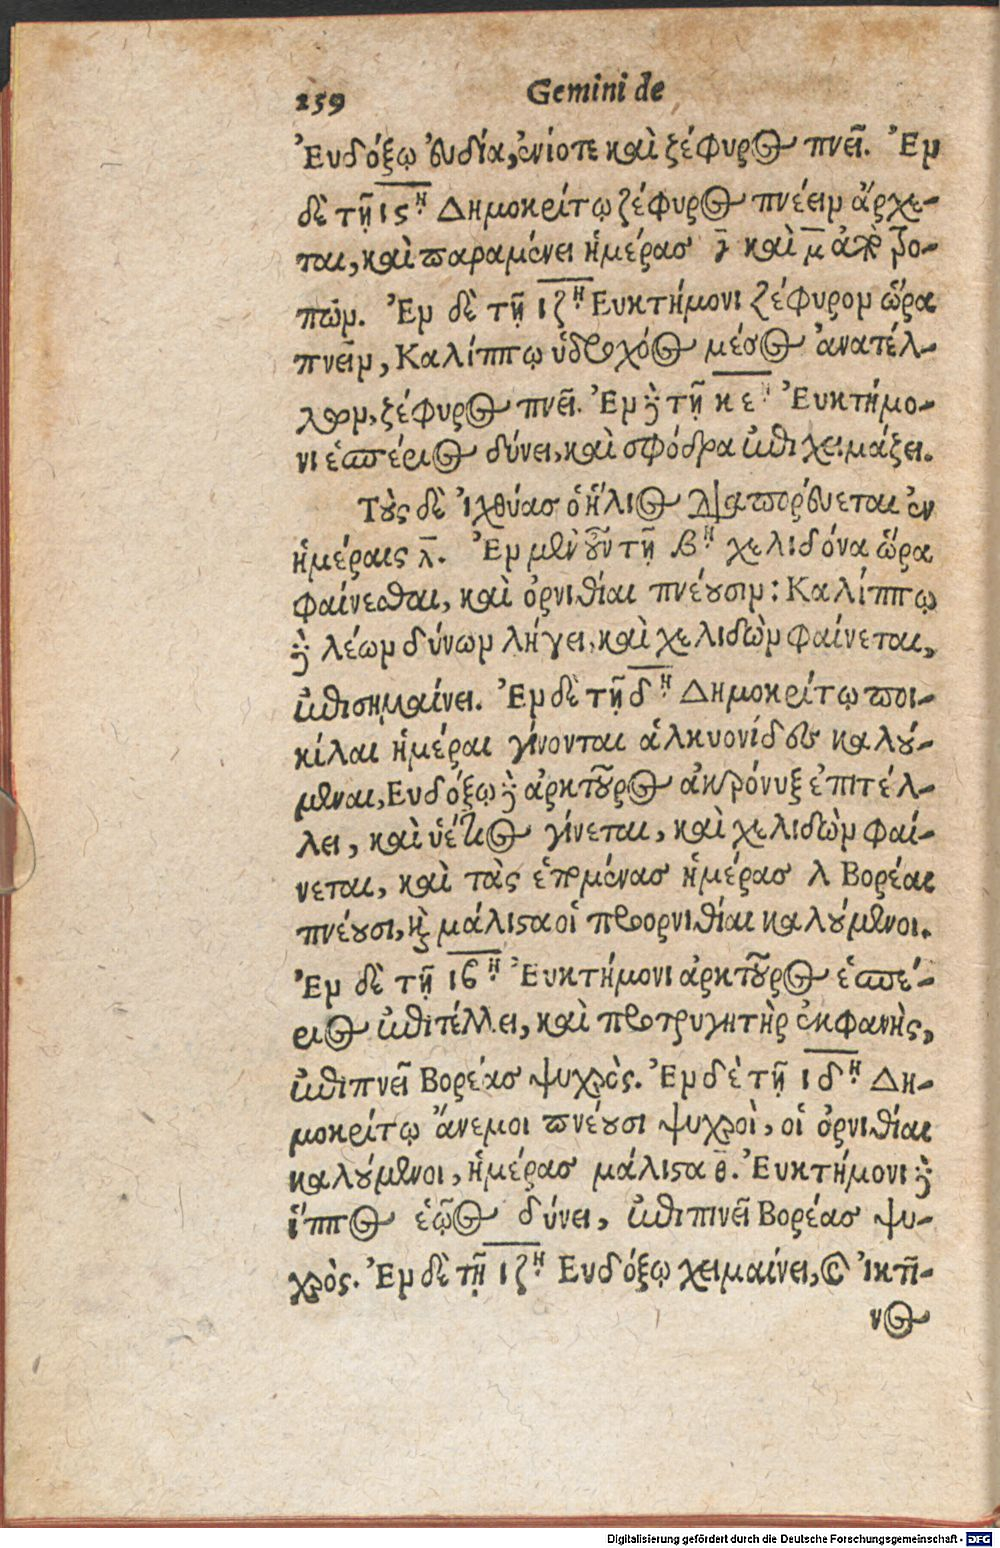 259 Gemini de
Ἐυδόξῳ ἐυδία, ἐνίοτε καὶ ζέφυρος πνεῖ. Ἐμ
δὲ τῇ ις η Δημοκρίτῳ ζέφυρος πνέειμ ἄρχε-
ται, καὶ παραμένει ἡμέρας γ καὶ μ ἀπὸ τρο-
πῶμ. Ἐμ δὲ τῇ ιζ η Ευκτήμονι ζέφυρομ ὥρα
πνεῖμ, Καλίππῳ ὑδροχόος μέσος ἀνατέλ-
λωμ, ζέφυρος πνεῖ. Ἐμ δὲ τῇ κε η Ἐυκτήμο-
νι ἑσπέριος δύνει, καὶ σφόδρα ἐπιχειμάζει.
Τοὺς δὲ Ἰχθύας ὁ ἥλιος διαπορέυεται ἐν
ἡμέραις λ. Ἐμ μὲν οὖν τῇ β η χελιδόνα ὥρα
φαίνεσθαι, καὶ ὀρνιθίαι πνέουσιμ: Καλίππῳ
δὲ λέωμ δύνωμ λήγει, καὶ χελιδὼμ φαίνεται,
ἐπισημαίνει. Ἐμ δὲ τῇ δ η Δημοκρίτῳ ποι-
κίλαι ἡμέραι γίνονται ἁλκυονίδες καλού-
μεναι, Ευδόξῳ δὲ ἀρκτοῦρος ἀκρόνυξ ἐπιτέλ-
λει, καὶ ὑέτιος γίνεται, καὶ χελιδὼμ φαί-
νεται, καὶ τὰς ἑπομένας ἡμέρας λ Βορέαι
πνέουσι, καὶ μάλιστα οἱ προορνιθίαι καλούμενοι.
Ἐμ δὲ τῇ ιβ η Ἐυκτήμονι ἀρκτοῦρος ἑσπέ-
ριος ἐπιτέλλει, καὶ προτρυγητὴρ ἐκφανὴς,
ἐπιπνεῖ Βορέας ψυχρὸς. Ἐμ δὲ τῇ ιδ η Δη-
μοκρίτῳ ἄνεμοι πνέουσι ψυχροὶ, οἱ ὀρνιθίαι
καλούμενοι, ἡμέρας μάλιστα θ. Ἐυκτήμονι δὲ
ἵππος ἑῷος δύνει, ἐπιπνεῖ Βορέας ψυ-
χρὸς. Ἐμ δὲ τῇ ιζ η Ευδόξῳ χειμαίνει, καὶ ἰκτῖ-
νος
Digitalisierung gefördert durch die Deutsche Forschungsgemeinschaft - DFG